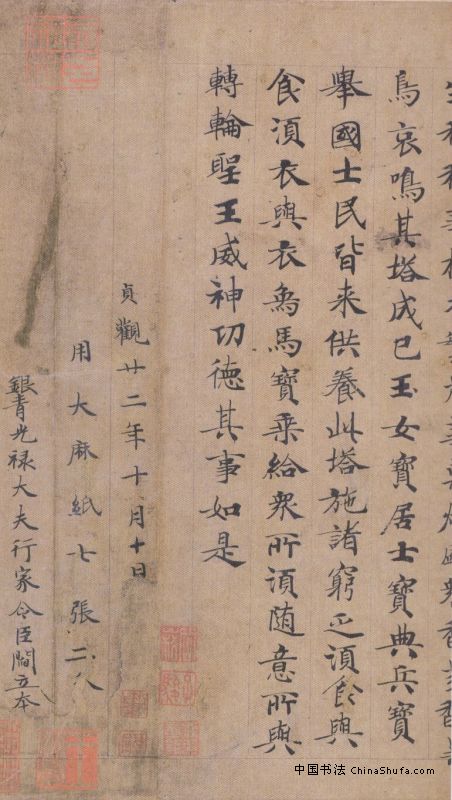 鳥哀鳴其塔成已玉女寶居士寶典兵寶
舉國士民皆来供養此塔施諸窮乏湏食與
食湏衣與衣象馬寶乗給衆所湏随意所與
轉輪聖王威神功徳其事如是
貞觀廿二年十月十日
用大麻紙七張二分
銀青光禄大夫行家令臣閻立本
中国书法 ChinaShufa.com